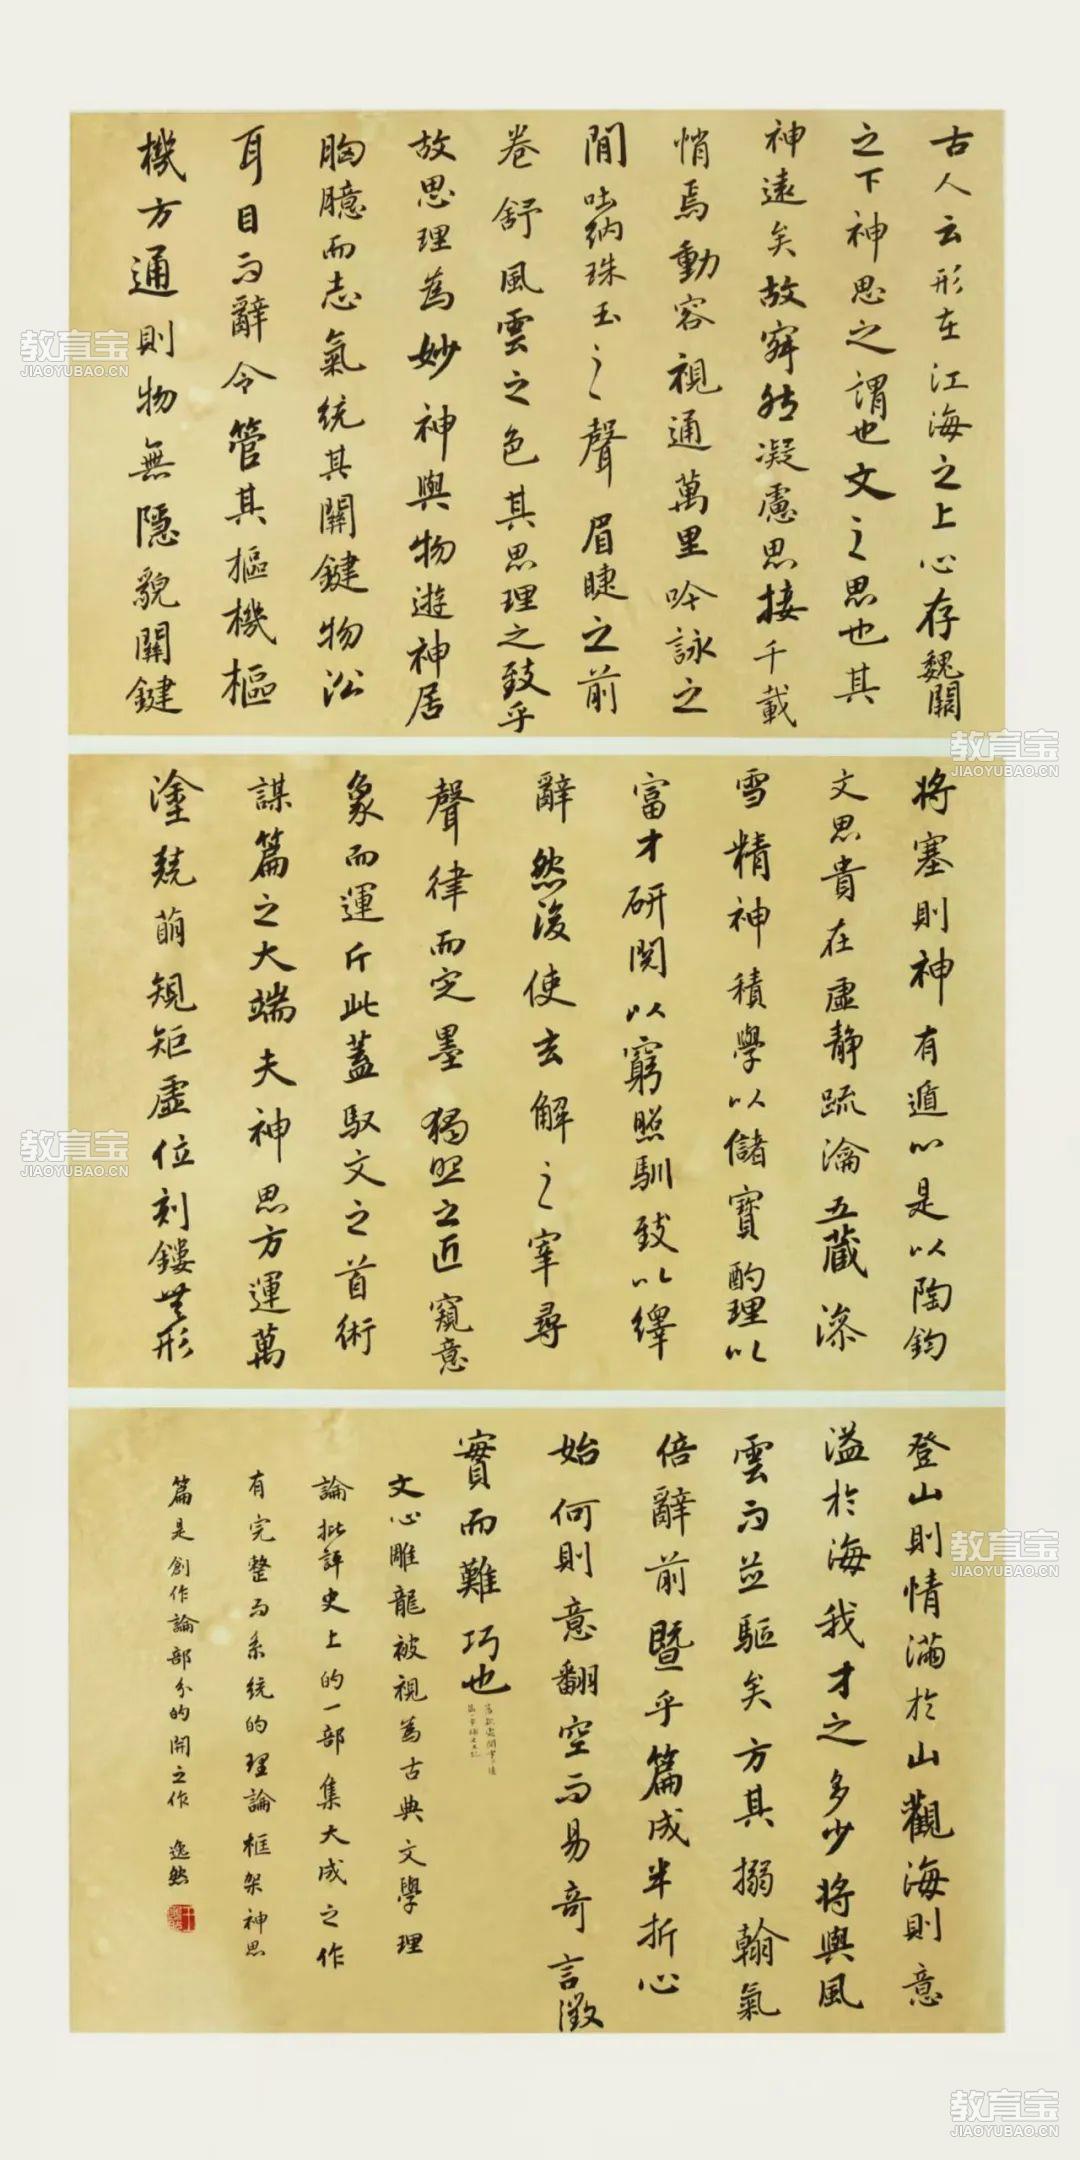 古人云形在江海之上心存魏闕
之下神思之謂也文之思也其
神遠矣故寂然凝慮思接千載
悄焉動容視通萬里吟詠之
間吐納珠玉之聲眉睫之前
卷舒風雲之色其思理之致乎
故思理為妙神與物遊神居
胸臆而志氣統其關鍵物沿
耳目而辭令管其樞機樞
機方通則物無隱貌關鍵
將塞則神有遁心是以陶鈞
文思貴在虛靜疏瀹五藏澡
雪精神積學以儲寶酌理以
富才研閱以窮照馴致以繹
辭然後使玄解之宰尋
聲律而定墨獨照之匠窺意
象而運斤此蓋馭文之首術
謀篇之大端夫神思方運萬
塗競萌規矩虛位刻鏤無形
登山則情滿於山觀海則意
溢於海我才之多少將與風
雲而並驅矣方其搦翰氣
倍辭前暨乎篇成半折心
始何則意翻空而易奇言徵
實而難巧也
文心雕龍被視為古典文學理
論批評史上的一部集大成之作
有完整而系統的理論框架神思
篇是創作論部分的開之作 逸然
教育宝
JIAOYUBAO.CN
教育宝
JIAOYUBAO.CN
教育宝
JIAOYUBAO.CN
教育宝
JIAOYUBAO.CN
教育宝
JIAOYUBAO.CN